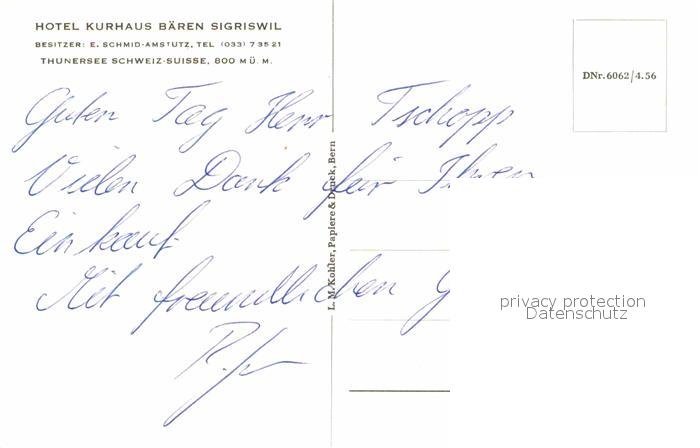 HOTEL KURHAUS BÄREN SIGRISWIL
BESITZER: E. SCHMID-AMSTUTZ, TEL (033) 7 35 21
THUNERSEE SCHWEIZ-SUISSE, 800 M Ü. M.
DNr. 6062/4.56
Guten Tag Herr Tschopp
Vielen Dank für Ihren
Einkauf.
Mit freundlichen G
L. M. Kohler, Papiere & Druck, Bern
privacy protection
Datenschutz